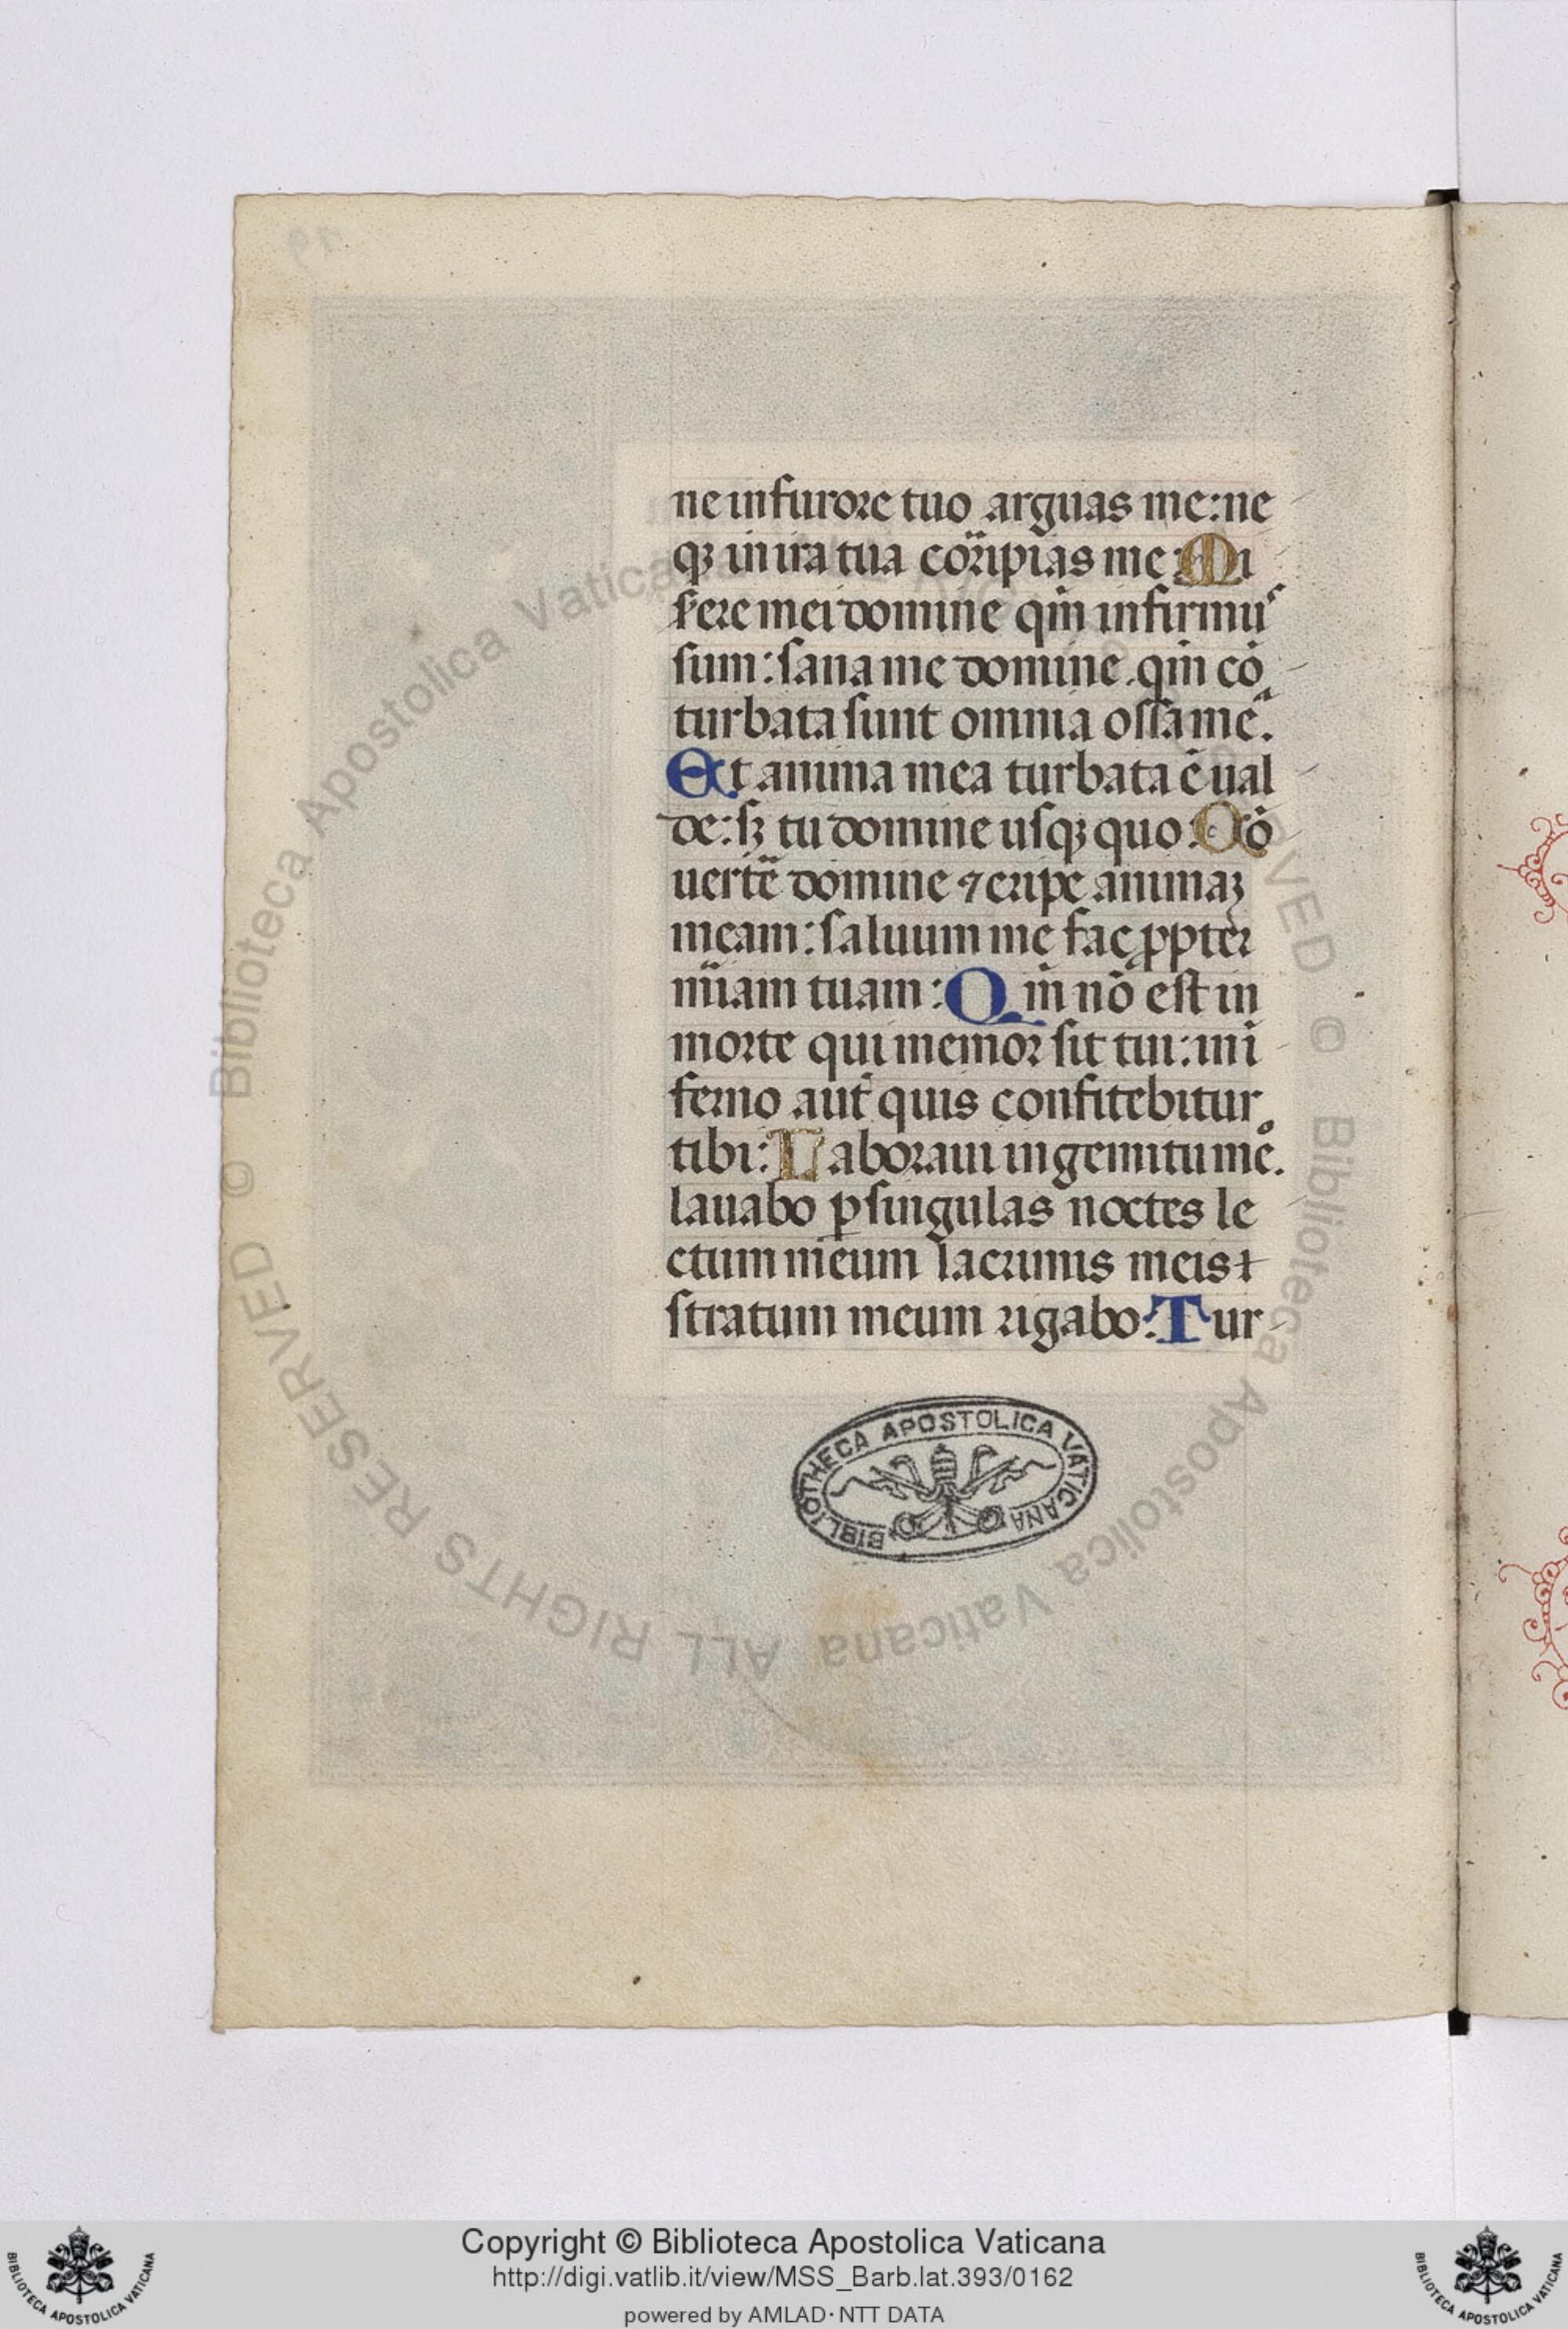 ne in furore tuo arguas me: ne
qꝫ in ira tua cor̈ipias me: Mi
sere mei domine qm̄ infirmuˢ
sum: sana me domine qm̄ cō
turbata sunt omnia ossa meᵃ.
Et anima mea turbata ē ual
de: sꝫ tu domine usqꝫ quo: Cō
uertē domine ⁊ eripe animaꝫ
meam: saluum me fac ꝓpter
mīam tuam: Qm̄ nō est in
morte qui memor sit tui: in i
ferno aut̄ quis confitebitur
tibi: Laboraui in gemitu meᵒ.
lauabo ꝑ singulas noctes le
ctum meum lacrimis meis +
stratum meum rigabo: Tur
BIBLIOTHECA APOSTOLICA VATICANA
© Biblioteca Apostolica Vaticana ALL RIGHTS RESERVED
Copyright © Biblioteca Apostolica Vaticana
http://digi.vatlib.it/view/MSS_Barb.lat.393/0162
powered by AMLAD·NTT DATA
BIBLIOTECA APOSTOLICA VATICANA
BIBLIOTECA APOSTOLICA VATICANA